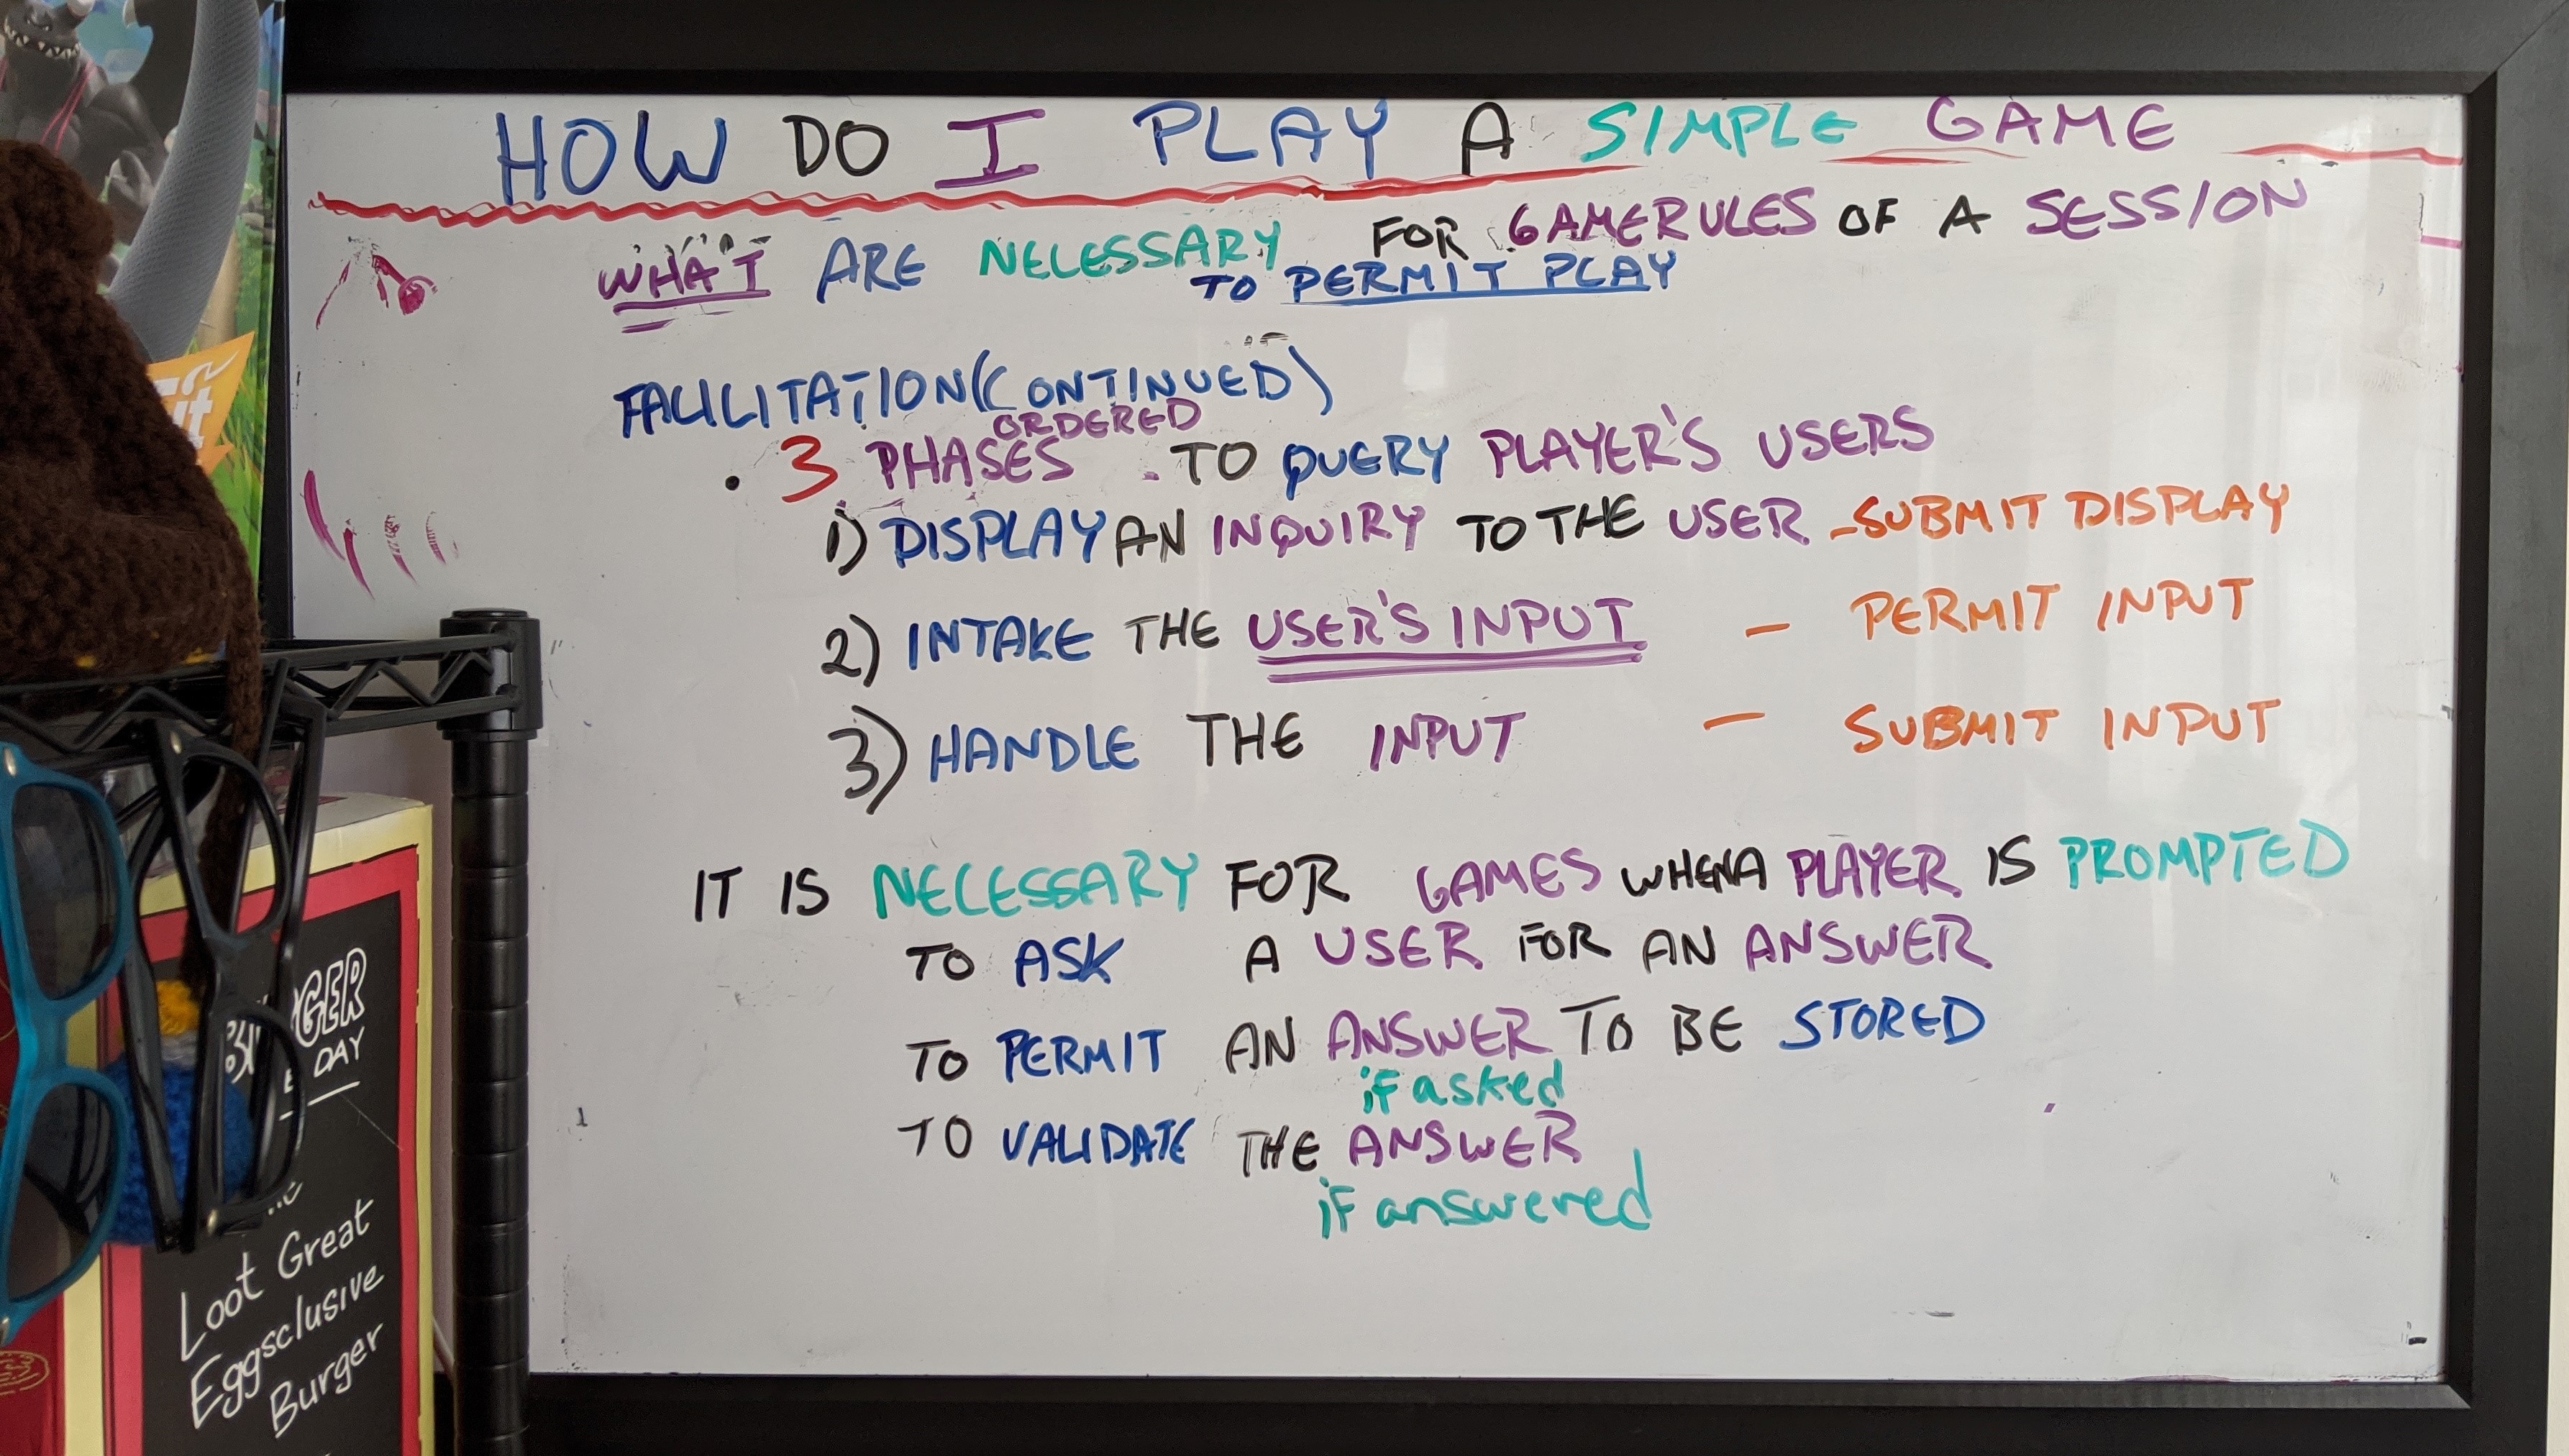 HOW DO I PLAY A SIMPLE GAME
WHAT ARE NECESSARY FOR GAMERULES OF A SESSION
TO PERMIT PLAY
FACILITATION (CONTINUED)
ORDERED
. 3 PHASES . TO QUERY PLAYER'S USERS
1) DISPLAY AN INQUIRY TO THE USER - SUBMIT DISPLAY
2) INTAKE THE USER'S INPUT - PERMIT INPUT
3) HANDLE THE INPUT - SUBMIT INPUT
IT IS NECESSARY FOR GAMES WHEN A PLAYER IS PROMPTED
TO ASK A USER FOR AN ANSWER
TO PERMIT AN ANSWER TO BE STORED
if asked
TO VALIDATE THE ANSWER
if answered
it
DAY
Loot Great
Eggsclusive
Burger